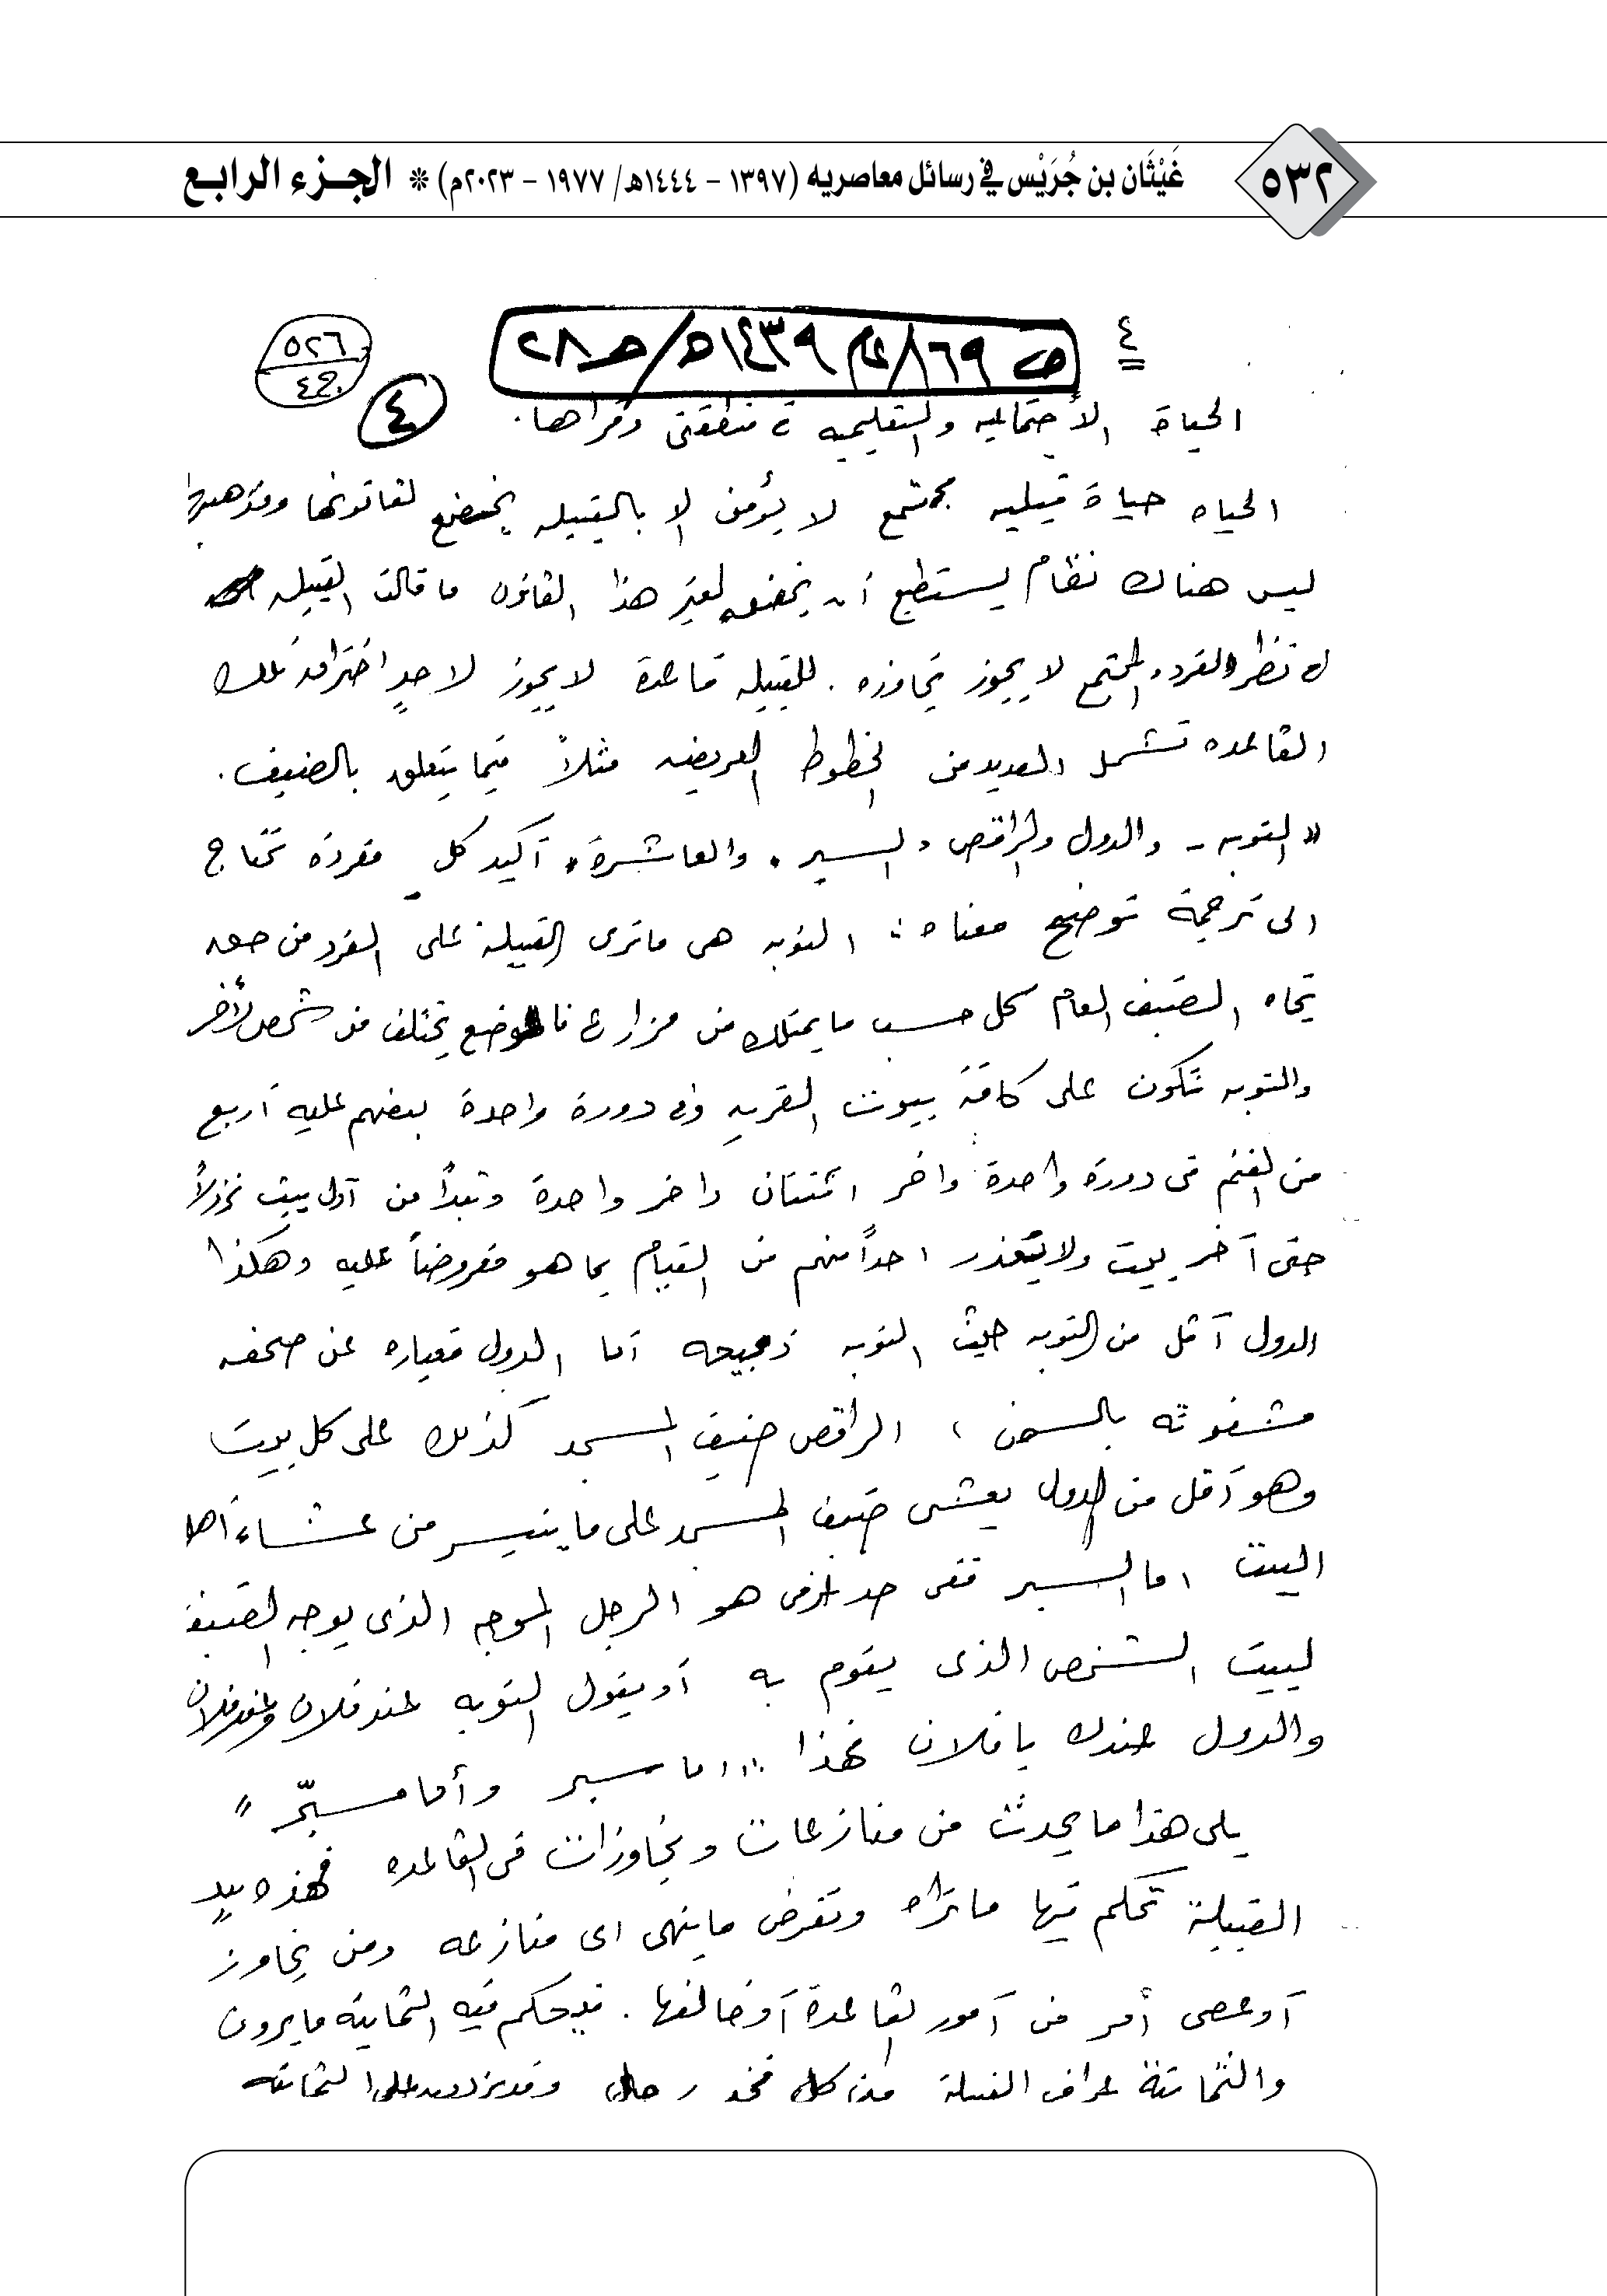 ٥٣٢
غَيْثَان بن جُرَيْس في رسائل معاصريه (١٣٩٧ - ١٤٤٤هـ/ ١٩٧٧ - ٢٠٢٣م) * الجزء الرابع
٤
ص ٨٦٩/عام ١٤٣٩هـ/حـ٢٨
٥٢٦
حـ٤
٤
الحياة الأجتماعيه والتعليميه في منطقتي وقراها.
الحياه حياة قبليه مجتمع لا يؤمن الا بالقبيله يخضع لقانونها
ليس هناك نظام يستطيع أن يخضعه لغير هذا القانون ما قالت القبيله
في نظر الفرد والمجتمع لا يجوز تجاوزه. للقبيله قاعدة لا يجوز لاحدٍ اختراقها تلك
القاعده تشمل العديد من الخطوط العريضه مثلاً فيما يتعلق بالضيف.
"النوبه - والدول والراقص والسبير، والعاشرة" أكيد كل مفردة تحتاج
الى ترجمة توضح معناه: النوبه هي ماترى القبيلة على الفرد من حق
تجاه الضيف العام كل حسب ما يمتلك من مزارع فالوضع يختلف من شخص لأخر
والنوبه تكون على كافة بيوت القريه وفي دورة واحدة بعضهم عليه أربع
من الغنم في دورة واحدة واخر اثنتان واخر واحدة وتبدأ من أول بيت نزولاً
حتى آخر بيت ولا يتعذر احداً منهم من القيام بما هو مفروضاً عليه وهكذا
الدول أقل من النوبه حيث النوبه ذبيحه أما الدول فعباره عن صحفه
مشغوثه بالسمن، الراقص ضيف المسجد كذلك على كل بيت
وهو أقل من الدول يعشى ضيف المسجد على ما يتيسر من عشاء أهل
البيت اما السبير ففي هو الرجل الموجه الذي يوجه الضيف
لبيت الشخص الذي يقوم به أو يقول النوبه عند فلان وعند فلان
والدول عندك يا فلان فهذا "اما سبير وأما مسبّر"
يلي هذا ما يحدث من منازعات وتجاوزات في القاعده فهذه بيدٍ
القبيلة تحكم فيها ماتراه وتفرض ماينهي اي منازعه ومن يتجاوز
أو عصى أمر من أمور القاعدة أو خالفها. فيحكم فيه الثمانيه مايرون
والثمانية عراف القبيلة من كل فخذ رجال وقد يزيدون على الثمانيه